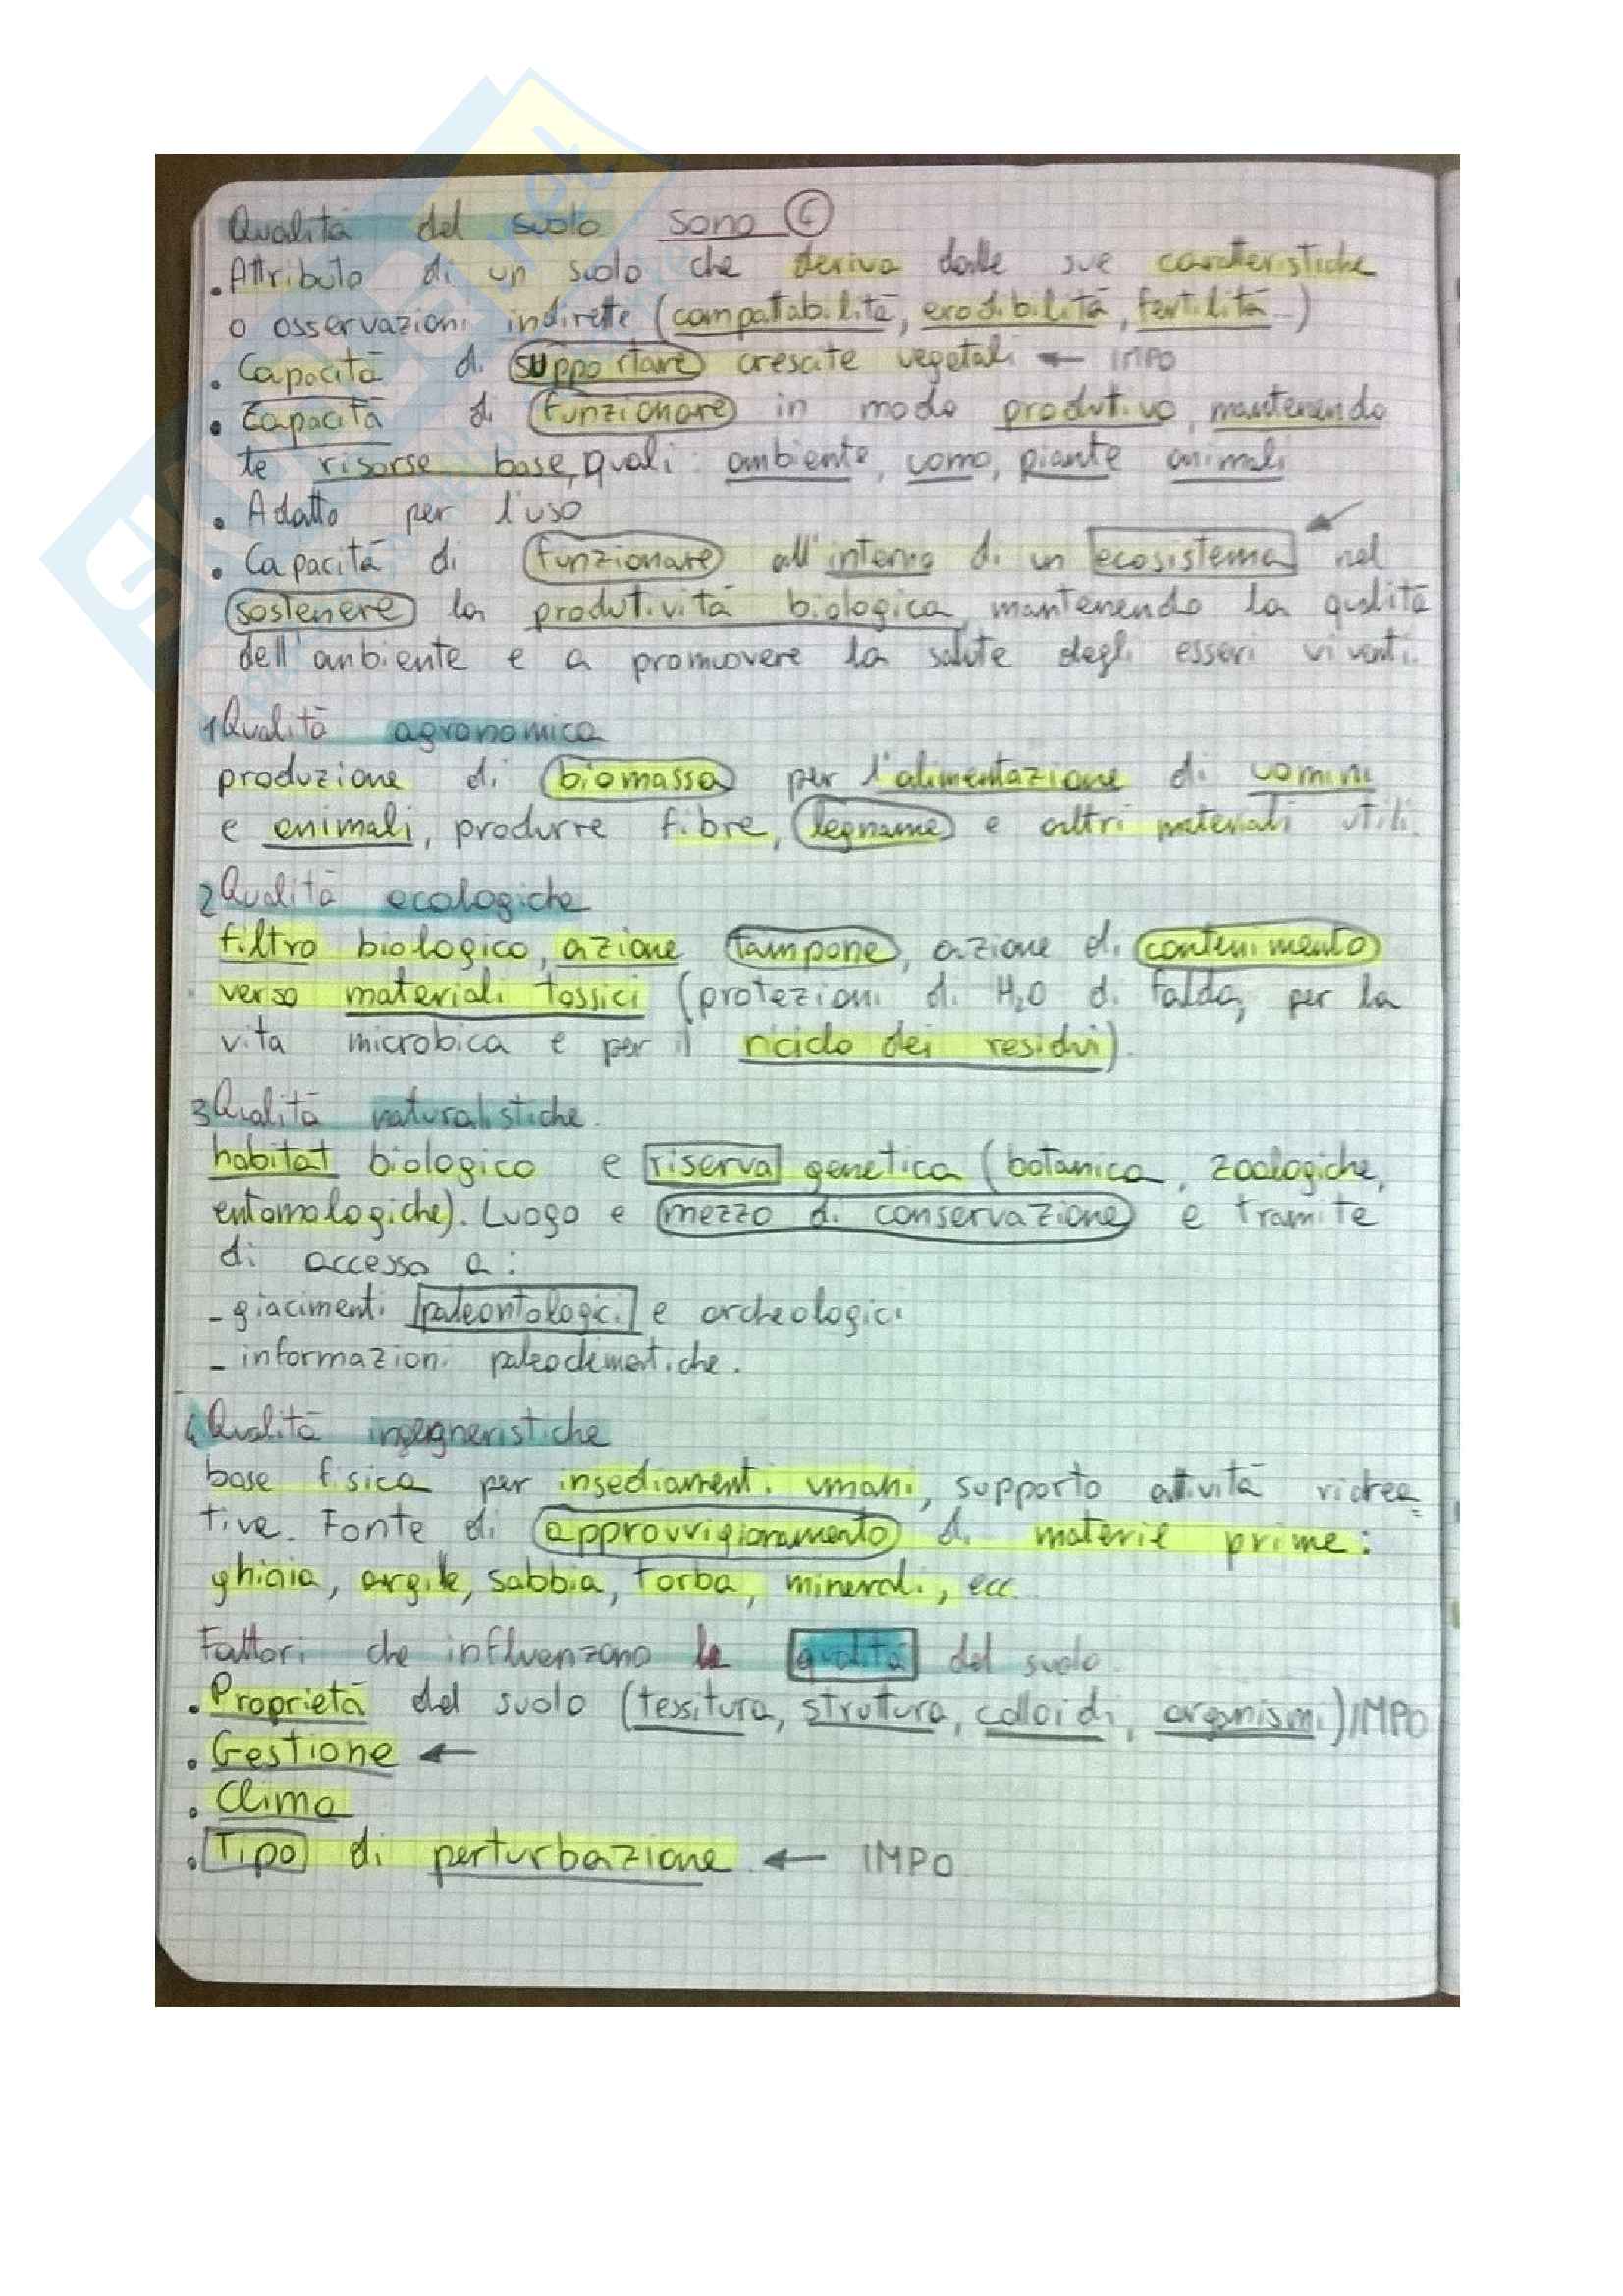 Qualità del suolo sono 4
• Attributo di un suolo che deriva dalle sue caratteristiche
o osservazioni indirette (compattabilità, erodibilità, fertilità...)
• Capacità di supportare crescite vegetali ← IMPO
• Capacità di funzionare in modo produttivo, mantenendo
le risorse base, quali: ambiente, uomo, piante animali
• Adatto per l'uso
• Capacità di funzionare all'interno di un ecosistema nel
sostenere la produttività biologica, mantenendo la qualità
dell'ambiente e a promuovere la salute degli esseri viventi.
1 Qualità agronomica
produzione di biomassa per l'alimentazione di uomini
e animali, produrre fibre, legname e altri materiali utili.
2 Qualità ecologiche
filtro biologico, azione tampone, azione di contenimento
verso materiali tossici (protezioni di H2O di falda, per la
vita microbica e per il riciclo dei residui).
3 Qualità naturalistiche.
habitat biologico e riserva genetica (botanica, zoologiche,
entomologiche). Luogo e mezzo di conservazione e tramite
di accesso a:
- giacimenti paleontologici e archeologici
- informazioni paleoclimatiche.
4 Qualità ingegneristiche
base fisica per insediamenti umani, supporto attività ricrea=
tive. Fonte di approvvigionamento di materie prime:
ghiaia, argille, sabbia, torba, minerali, ecc.
Fattori che influenzano la qualità del suolo.
• Proprietà del suolo (tessitura, struttura, colloidi, organismi) IMPO
• Gestione ←
• Clima
• Tipo di perturbazione. ← IMPO